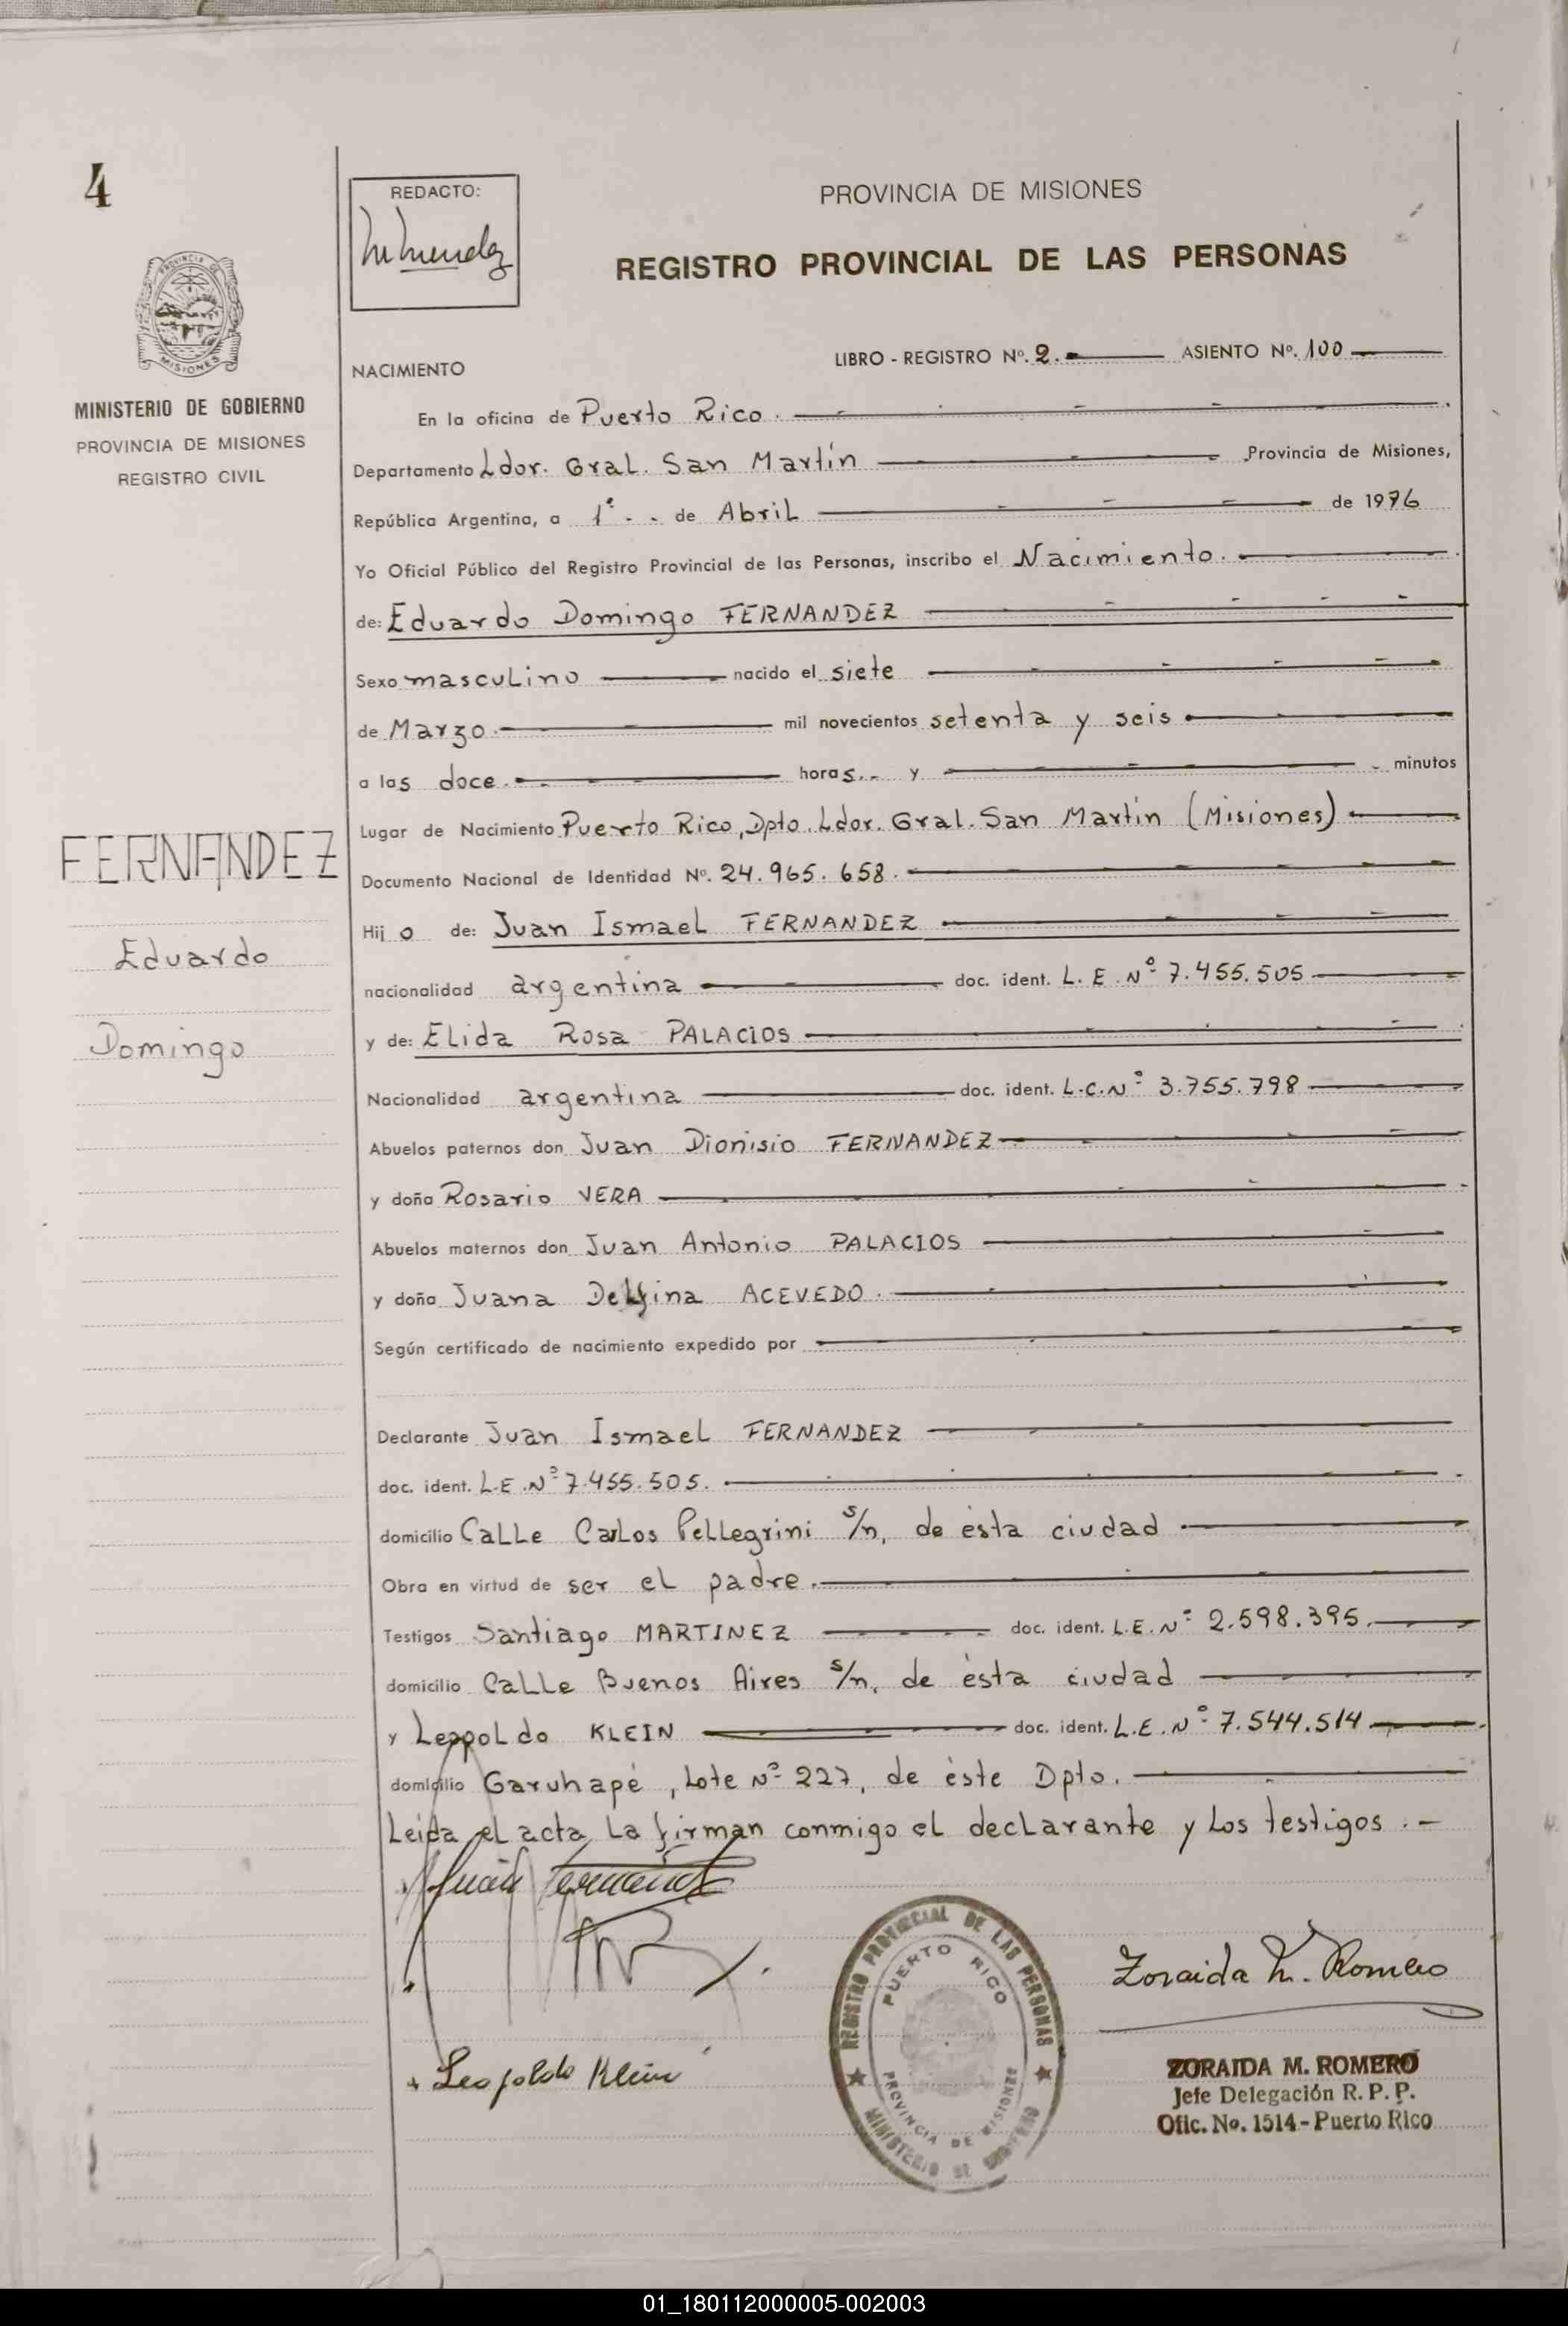 4
REDACTO:
PROVINCIA DE MISIONES
REGISTRO PROVINCIAL DE LAS PERSONAS
PROVINCIA DE
MISIONES
MINISTERIO DE GOBIERNO
PROVINCIA DE MISIONES
REGISTRO CIVIL
NACIMIENTO
LIBRO - REGISTRO Nº. 2. ASIENTO Nº. 100
En la oficina de Puerto Rico.
Departamento Ldor. Gral. San Martín Provincia de Misiones,
República Argentina, a 1º de Abril de 1976
Yo Oficial Público del Registro Provincial de las Personas, inscribo el Nacimiento.
de: Eduardo Domingo FERNANDEZ
Sexo masculino nacido el siete
de Marzo. mil novecientos setenta y seis
a las doce. horas. y minutos
Lugar de Nacimiento Puerto Rico, Dpto. Ldor. Gral. San Martín (Misiones)
Documento Nacional de Identidad Nº. 24.965.658.
FERNANDEZ
Eduardo
Domingo
Hijo de: Juan Ismael FERNANDEZ
nacionalidad argentina doc. ident. L.E. Nº 7.455.505
y de: Elida Rosa PALACIOS
Nacionalidad argentina doc. ident. L.C. Nº 3.755.798
Abuelos paternos don Juan Dionisio FERNANDEZ
y doña Rosario VERA
Abuelos maternos don Juan Antonio PALACIOS
y doña Juana Delfina ACEVEDO.
Según certificado de nacimiento expedido por
Declarante Juan Ismael FERNANDEZ
doc. ident. L.E. Nº 7.455.505.
domicilio Calle Carlos Pellegrini s/n, de ésta ciudad
Obra en virtud de ser el padre.
Testigos Santiago MARTINEZ doc. ident. L.E. Nº 2.598.395.
domicilio Calle Buenos Aires s/n, de ésta ciudad
y Leopoldo KLEIN doc. ident. L.E. Nº 7.544.514
domicilio Garuhapé, Lote Nº 227, de éste Dpto.
Leída el acta, la firman conmigo el declarante y los testigos.-
Juan Fernandez
Leopoldo Klein
REGISTRO PROVINCIAL DE LAS PERSONAS
PUERTO RICO
PROVINCIA DE MISIONES
MINISTERIO DE GOBIERNO
Zoraida M. Romero
ZORAIDA M. ROMERO
Jefe Delegación R. P. P.
Ofic. No. 1514 - Puerto Rico
01_180112000005-002003